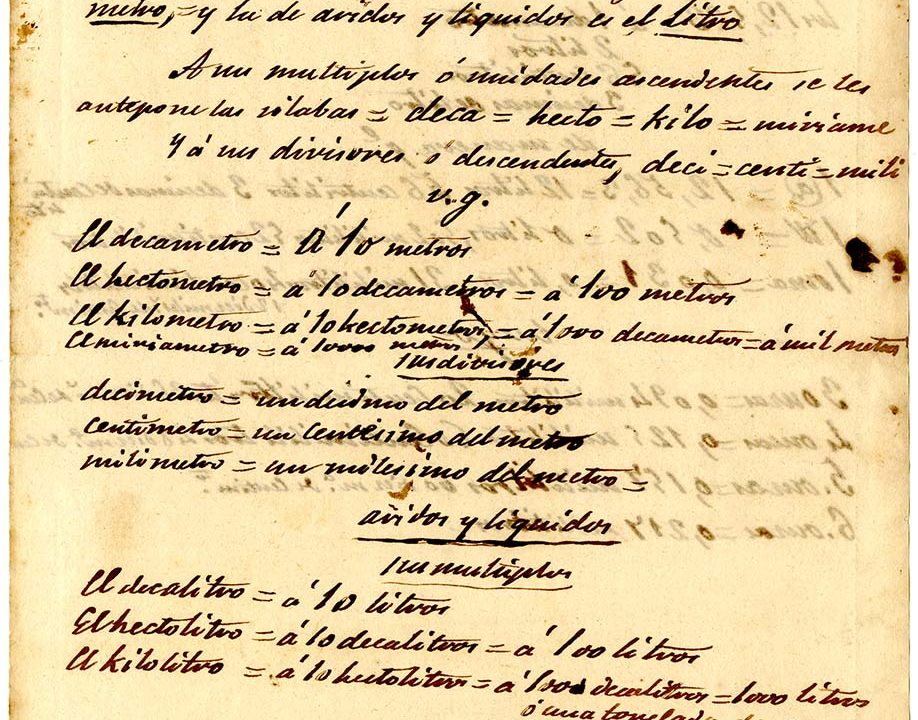 metro, = y la de aridos y liquidos es el Litro
A sus multiplos ó unidades ascendentes se les
antepone las silabas = deca = hecto = kilo = miriame
Y á sus divisores ó descendentes, deci = centi = mili
v. g.
El decametro = Á 10 metros
El hectometro = á 10 decametros = á 100 metros
El kilometro = á 10 hectometros, = á 1000 decametros = á mil metros
El miriametro = á 10000 metros
sus divisores
decimetro = un decimo del metro
centimetro = un centesimo del metro
milimetro = un milesimo del metro =
aridos y liquidos
sus multiplos
El decalitro = á 10 litros
El hectolitro = á 10 decalitros = á 100 litros
El kilolitro = á 10 hectolitros = á decalitros = 1000 litros
ó una tonelada